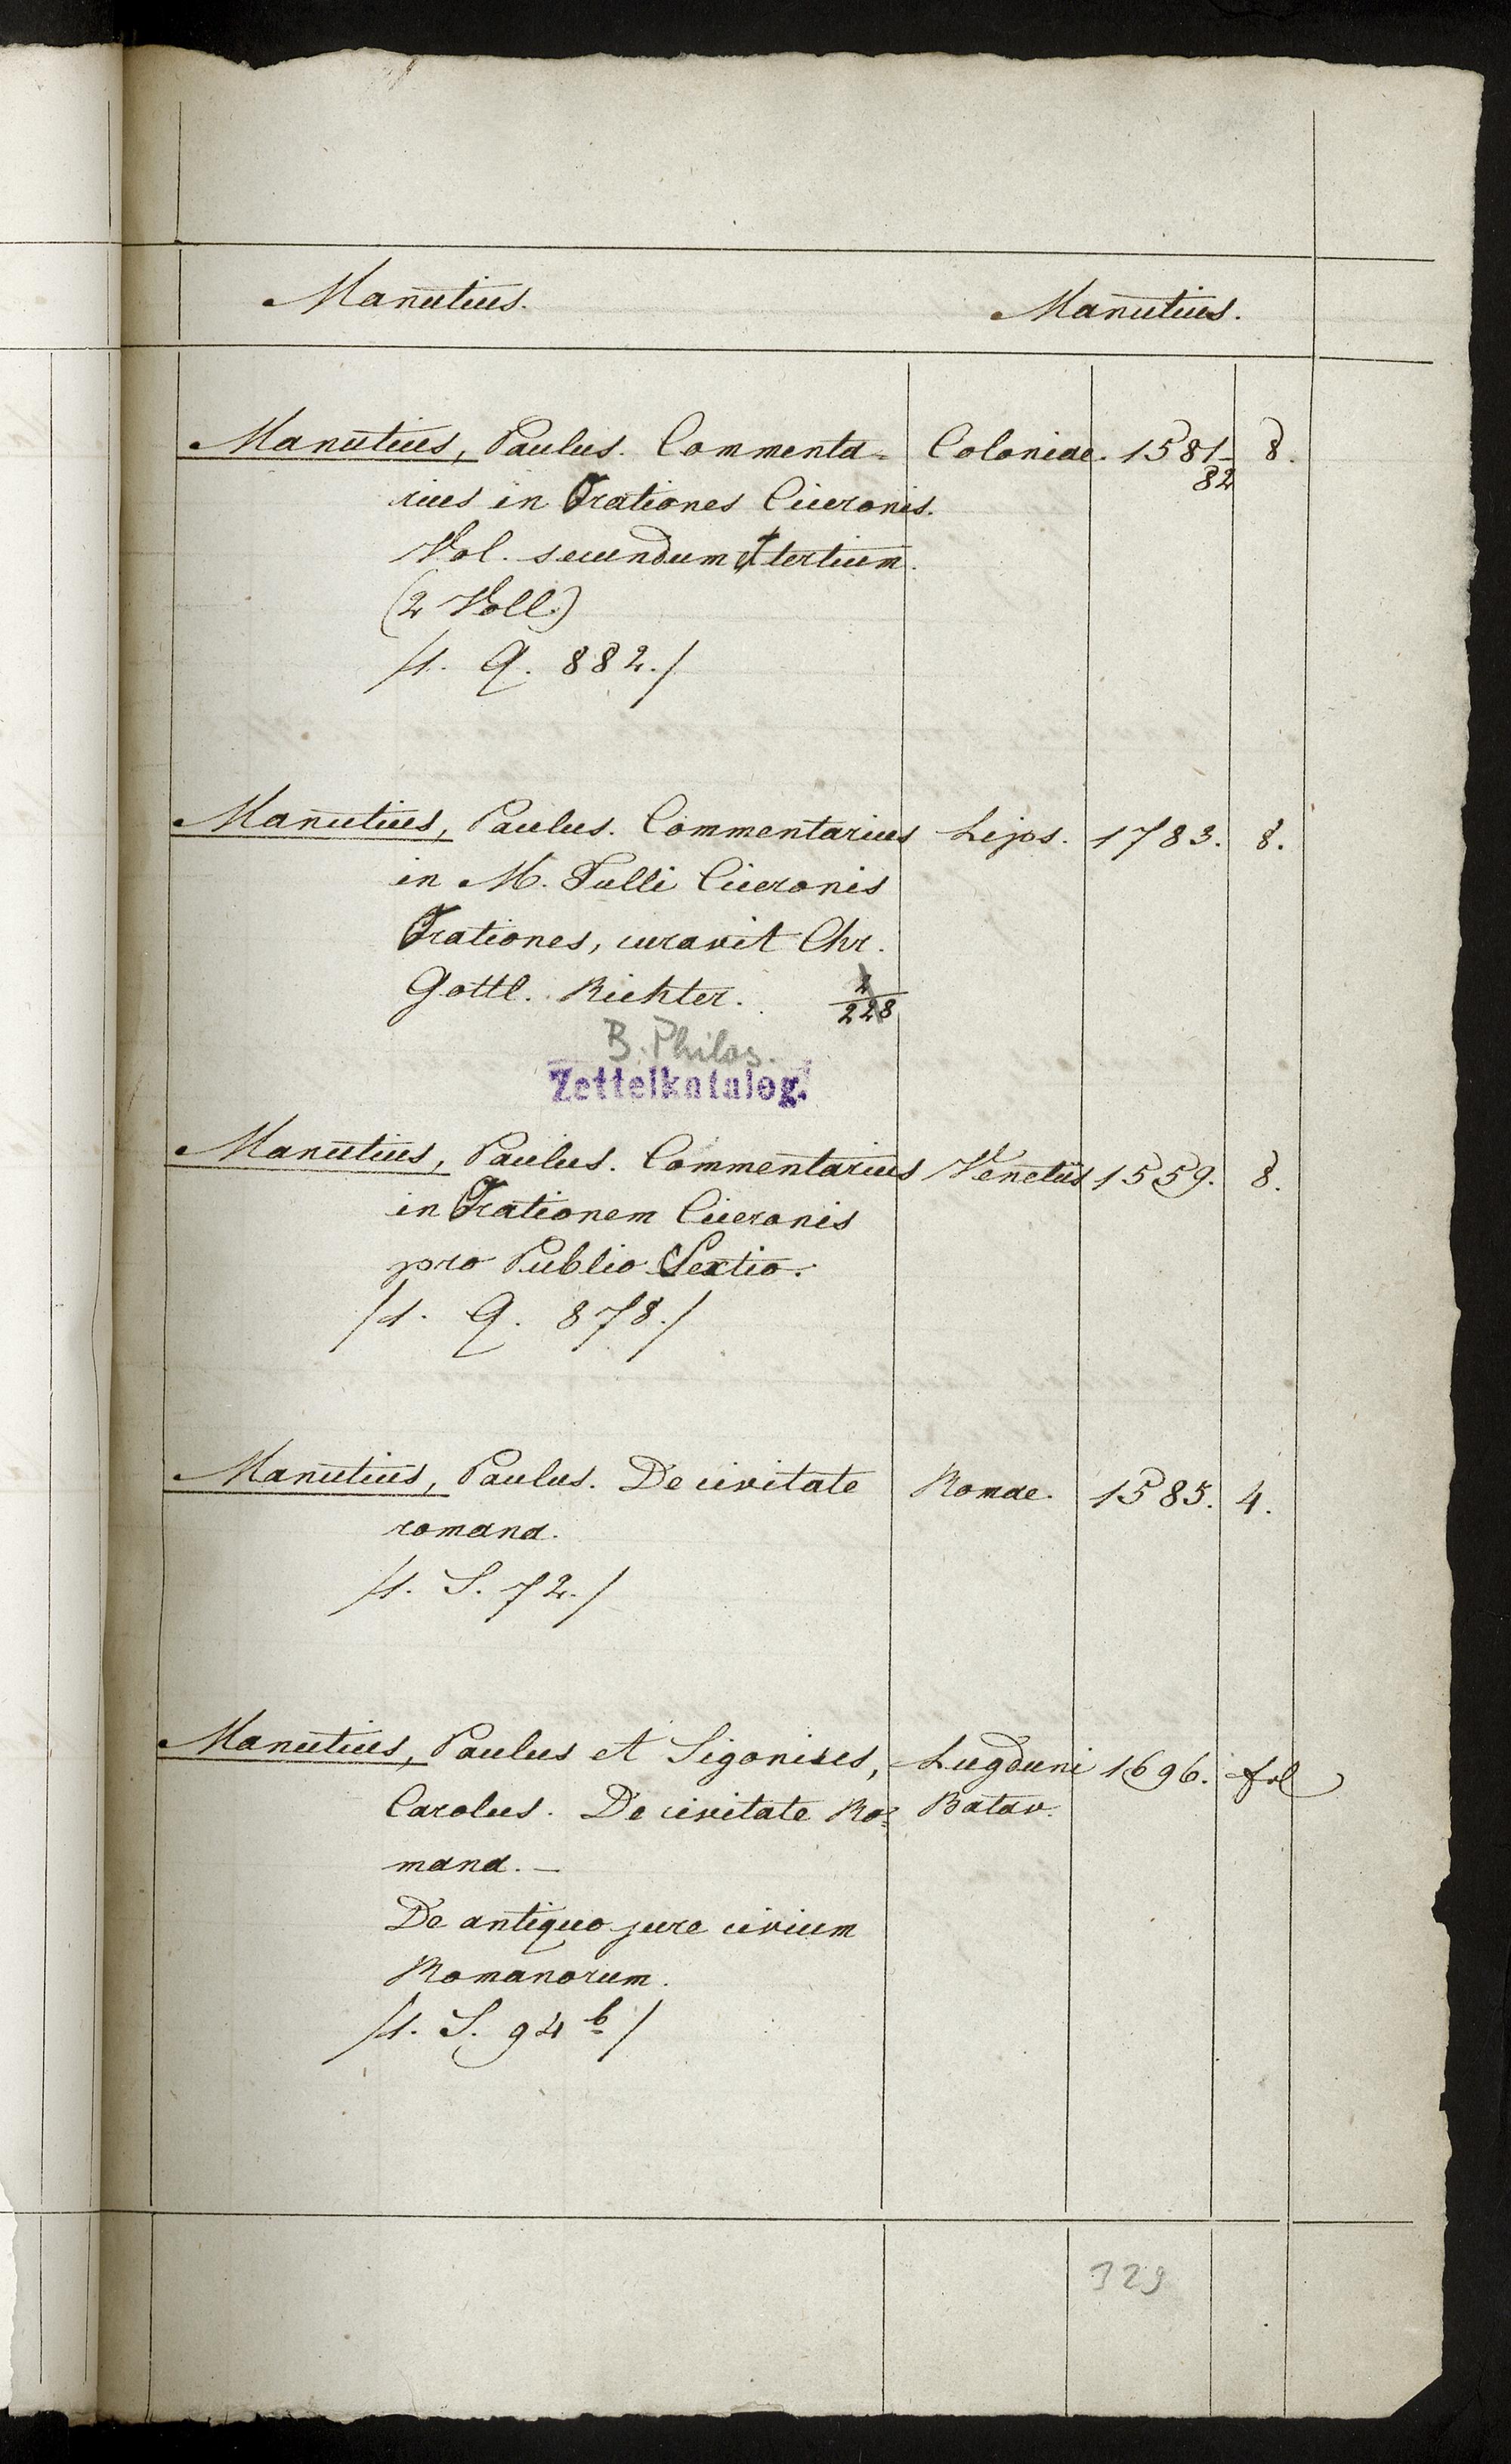 Manutius. Manutius.
Manutius, Paulus. Commenta- Coloniae. 1581- 8.
82
rius in Orationes Ciceronis.
Vol. secundum et tertium.
(2 Voll.)
/1. Q. 882./
Manutius, Paulus. Commentarius Lips. 1783. 8.
in M. Tulli Ciceronis
Orationes, curavit Chr.
Gottl. Richter.
228
B. Philos.
Zettelkatalog.
Manutius, Paulus. Commentarius Venetiis 1559. 8.
in Orationem Ciceronis
pro Publio Sextio.
/1. Q. 878./
Manutius, Paulus. De civitate Romae. 1585. 4.
romana.
/1. S. 72./
Manutius, Paulus et Sigonius, Lugduni 1696. fol
Carolus. De civitate Ro- Batav.
mana. —
De antiquo jure civium
Romanorum.
/1. S. 94 b/
329